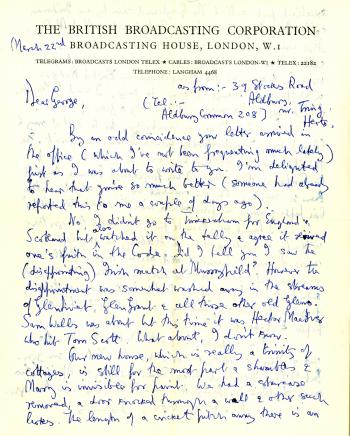 THE BRITISH BROADCASTING CORPORATION
BROADCASTING HOUSE, LONDON, W.1
March 22nd
TELEGRAMS: BROADCASTS LONDON TELEX ★ CABLES: BROADCASTS LONDON-W1 ★ TELEX: 22182
TELEPHONE: LANGHAM 4468
as from:- 39 Stocks Road
Dear George,
Aldbury,
(Tel.:- nr. Tring,
Aldbury Common 208) Herts.
By an odd coincidence your letter arrived in
the office (which I've not been frequenting much lately)
just as I was about to write to you. I'm delighted
to hear that you're so much better (someone had already
reported this to me a couple of days ago).
No I didn't go to Twickenham for England v
Scotland but also watched it on the telly & agree it
one's faith in the Code. Did I tell you I saw the
(disappointing) Irish match at Murrayfield? However the
disappointment was somewhat washed away in the streams
of Glenlivet, Glen Grant & all those other old Glens.
Sam Wills was about but this time it was Hector MacIver
who hit Tom Scott. What about, I don't know.
Our new house, which is really a trinity of
cottages, is still for the most part a shambles &
Mary is invisible for paint. We had a staircase
removed, a door knocked through a wall & other such
larks. The length of a cricket pitch away there is an